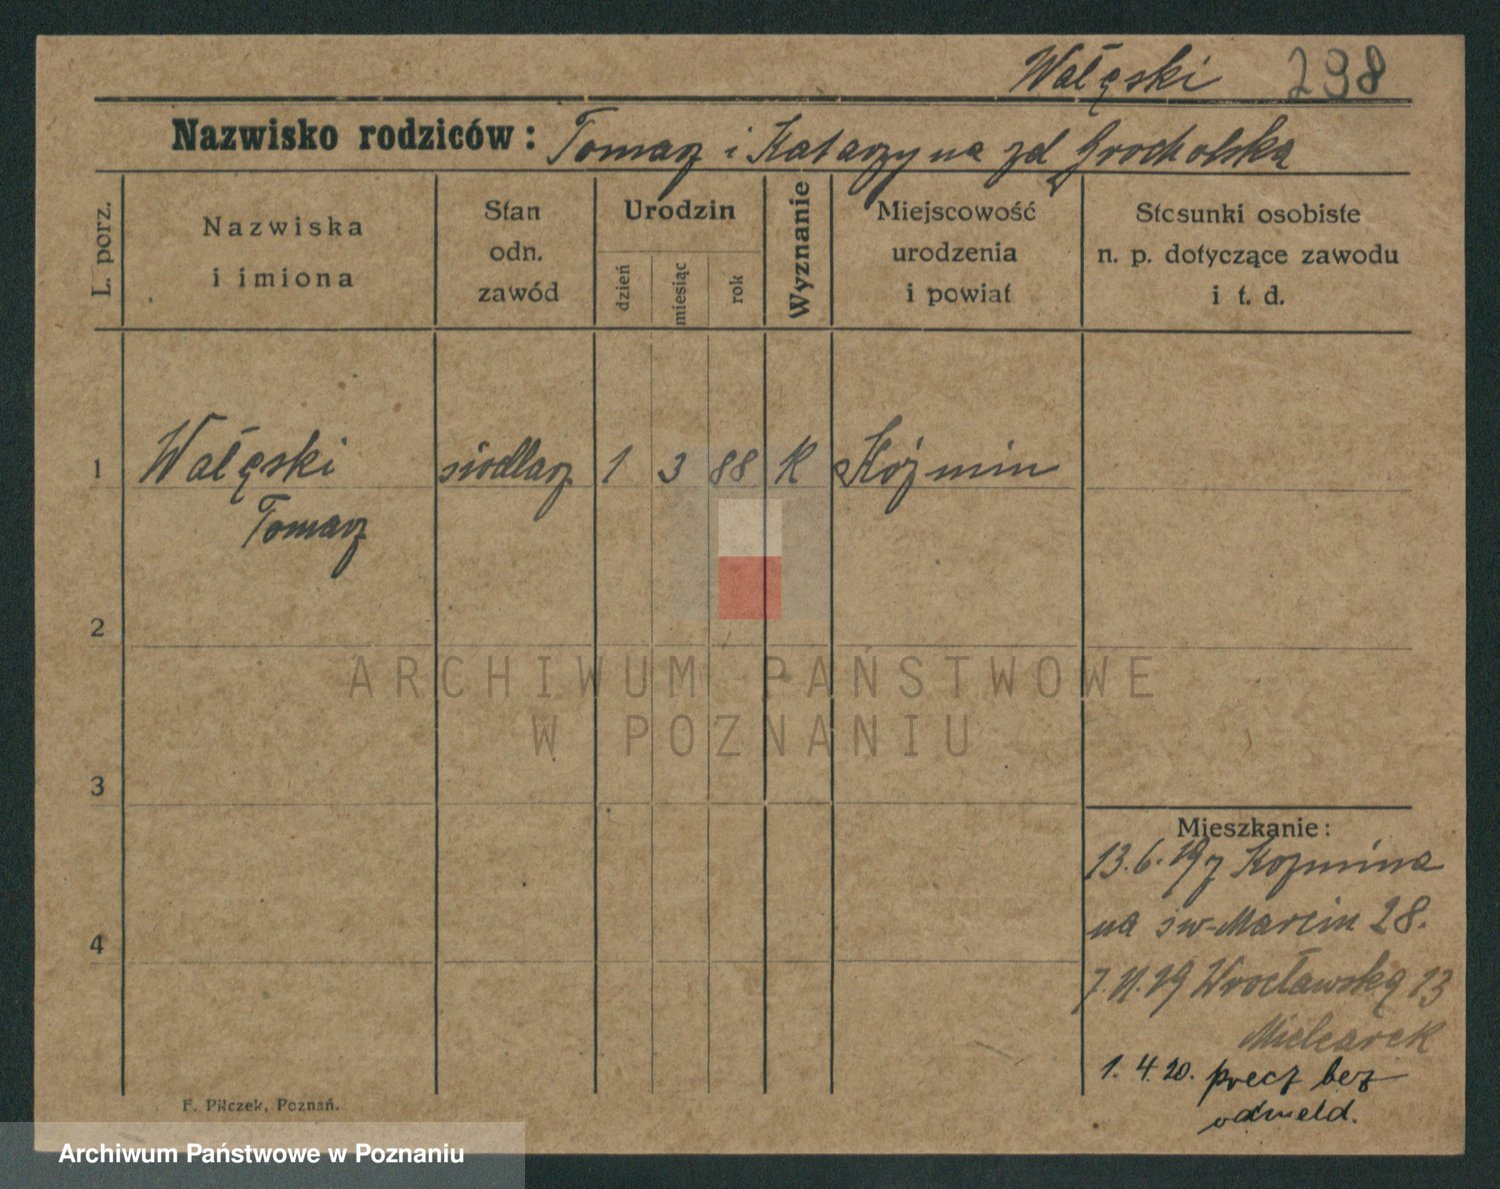 Wałęski 298
Nazwisko rodziców: Tomasz i Katarzyna zd Grocholska
L. porz.
Nazwiska
i imiona
Stan
odn.
zawód
Urodzin
dzień
miesiąc
rok
Wyznanie
Miejscowość
urodzenia
i powiat
Stosunki osobiste
n. p. dotyczące zawodu
i t. d.
1 Wałęski siodlarz 1 3 88 K Koźmin
Tomasz
2
ARCHIWUM PAŃSTWOWE
W POZNANIU
3
Mieszkanie:
13.6.19 z Kozmina
na św-Marcin 28.
4
7.11.19 Wrocławską 13
Mielcarek
1.4.20. precz bez
odmeld.
F. Pilczek, Poznań.
Archiwum Państwowe w Poznaniu